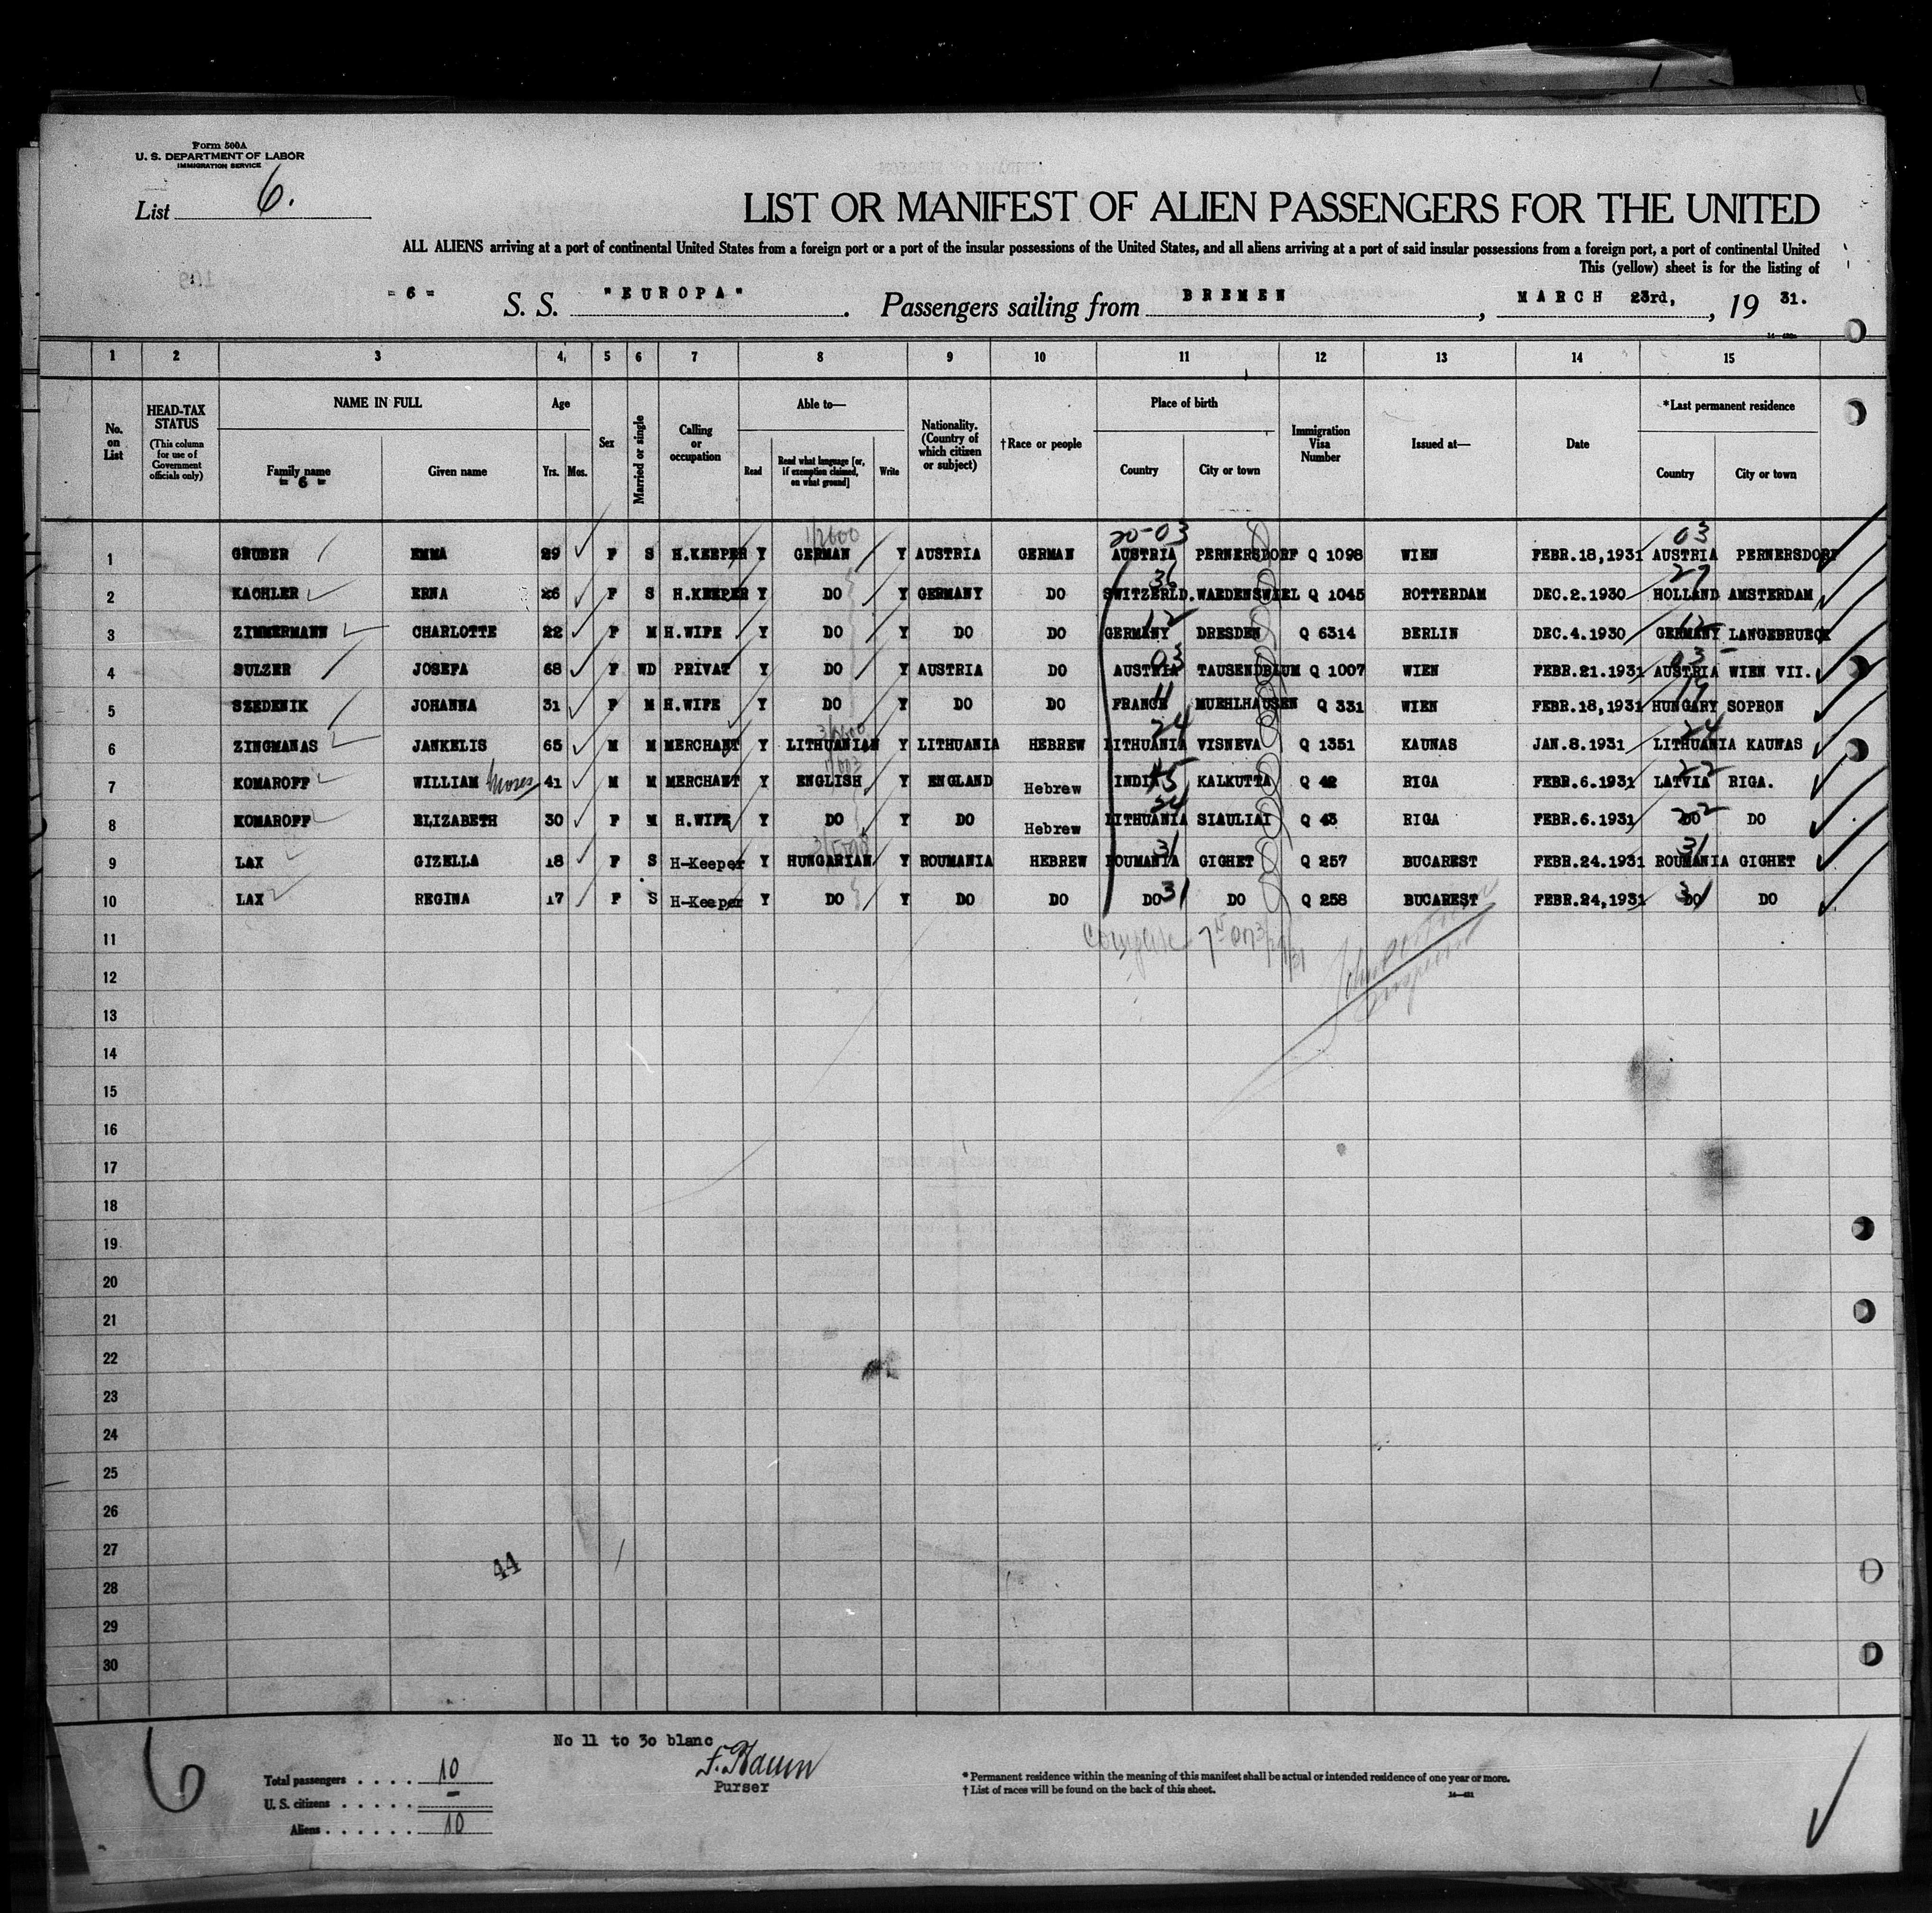 Form 500A
U. S. DEPARTMENT OF LABOR
IMMIGRATION SERVICE
List 6.
LIST OR MANIFEST OF ALIEN PASSENGERS FOR THE UNITED
ALL ALIENS arriving at a port of continental United States from a foreign port or a port of the insular possessions of the United States, and all aliens arriving at a port of said insular possessions from a foreign port, a port of continental United
This (yellow) sheet is for the listing of
= 6 = S. S. "EUROPA". Passengers sailing from BREMEN, MARCH 23rd, 19 31.
1 2 3 4 5 6 7 8 9 10 11 12 13 14 15
No. on List
HEAD-TAX STATUS (This column for use of Government officials only)
NAME IN FULL
Family name = 6 = Given name
Age Yrs. Mos.
Sex
Married or single
Calling or occupation
Able to—
Read Read what language [or, if exemption claimed, on what ground] Write
Nationality. (Country of which citizen or subject)
†Race or people
Place of birth
Country City or town
Immigration Visa Number
Issued at—
Date
*Last permanent residence
Country City or town
20-03 03
1 GRUBER EMMA 29 F S H.KEEPER Y GERMAN Y AUSTRIA GERMAN AUSTRIA PERNERSDORF Q 1098 WIEN FEBR.18,1931 AUSTRIA PERNERSDORF
36 27
2 KACHLER ERNA 26 F S H.KEEPER Y DO Y GERMANY DO SWITZERLD. WAEDENSWIEL Q 1045 ROTTERDAM DEC.2.1930 HOLLAND AMSTERDAM
12 12
3 ZIMMERMANN CHARLOTTE 22 F M H.WIFE Y DO Y DO DO GERMANY DRESDEN Q 6314 BERLIN DEC.4.1930 GERMANY LANGEBRUECK
03 03
4 SULZER JOSEFA 68 F WD PRIVAT Y DO Y AUSTRIA DO AUSTRIA TAUSENDBLUM Q 1007 WIEN FEBR.21.1931 AUSTRIA WIEN VII.
11 19
5 SZEDENIK JOHANNA 31 F M H.WIFE Y DO Y DO DO FRANCE MUEHLHAUSEN Q 331 WIEN FEBR.18,1931 HUNGARY SOPRON
24 24
6 ZINGMANAS JANKELIS 65 M M MERCHANT Y LITHUANIAN Y LITHUANIA HEBREW LITHUANIA VISNEVA Q 1351 KAUNAS JAN.8.1931 LITHUANIA KAUNAS
45 22
7 KOMAROFF WILLIAM Moses 41 M M MERCHANT Y ENGLISH Y ENGLAND Hebrew INDIA KALKUTTA Q 42 RIGA FEBR.6.1931 LATVIA RIGA.
24 22
8 KOMAROFF ELIZABETH 30 F M H.WIFE Y DO Y DO Hebrew LITHUANIA SIAULIAI Q 43 RIGA FEBR.6.1931 DO DO
31 31
9 LAX GIZELLA 18 F S H-Keeper Y HUNGARIAN Y ROUMANIA HEBREW ROUMANIA GIGHET Q 257 BUCAREST FEBR.24.1931 ROUMANIA GIGHET
10 LAX REGINA 17 F S H-Keeper Y DO Y DO DO DO 31 DO Q 258 BUCAREST FEBR.24,1931 31 DO DO
11
12
13
14
15
16
17
18
19
20
21
22
23
24
25
26
27
44
28
29
30
No 11 to 30 blanc
6
Purser
Total passengers . . . . 10
U. S. citizens . . . . . –
Aliens . . . . . . 10
* Permanent residence within the meaning of this manifest shall be actual or intended residence of one year or more.
† List of races will be found on the back of this sheet.